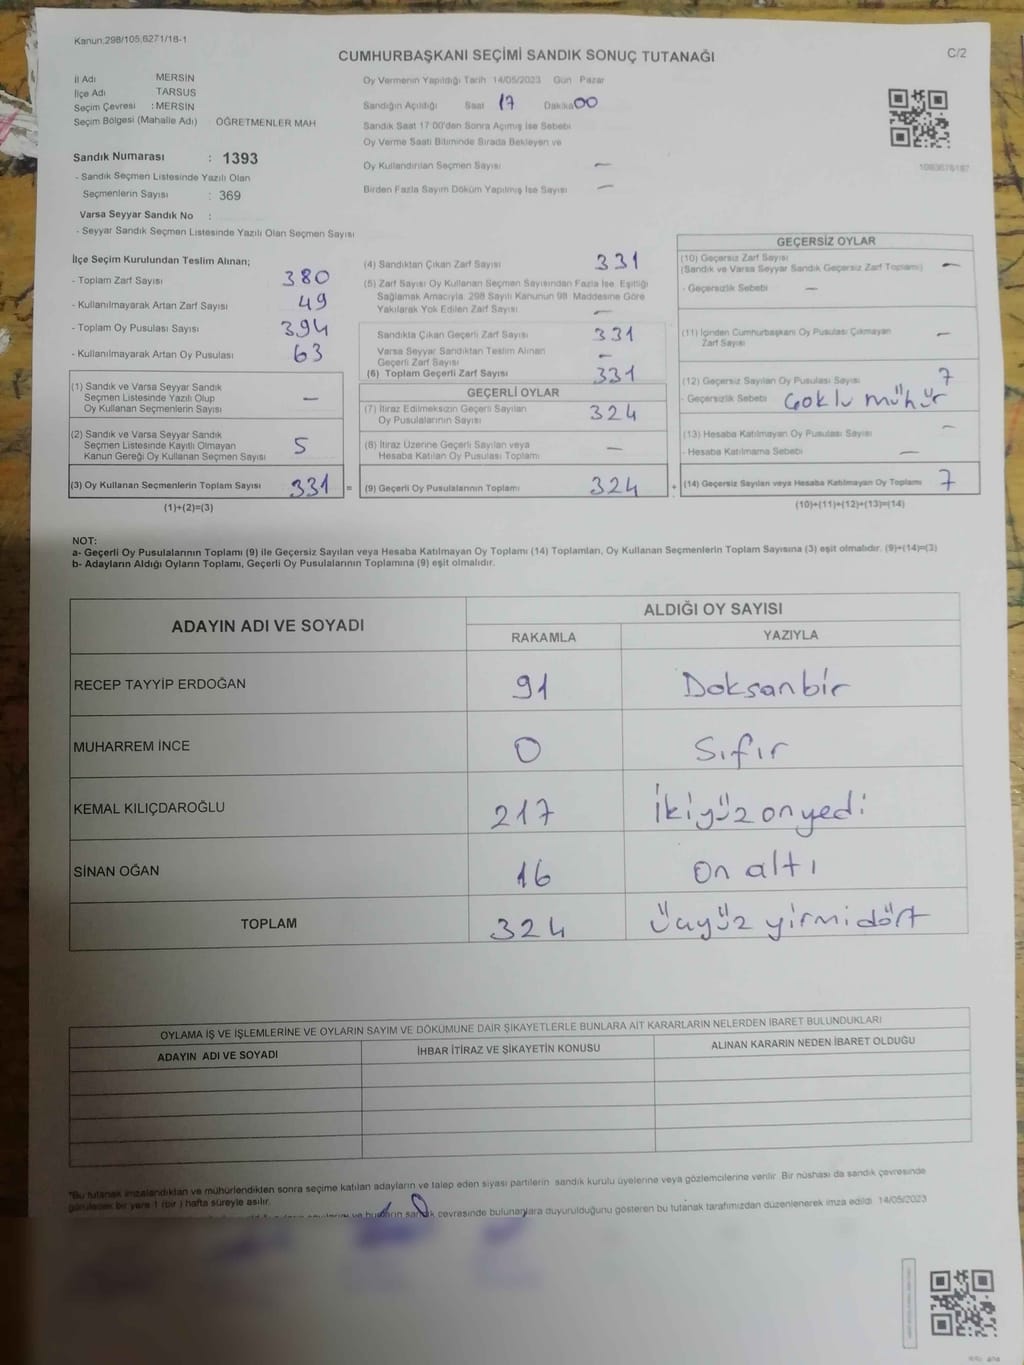 Kanun:298/105,6271/18-1
CUMHURBAŞKANI SEÇİMİ SANDIK SONUÇ TUTANAĞI
C/2
İl Adı MERSİN
İlçe Adı TARSUS
Seçim Çevresi : MERSİN
Seçim Bölgesi (Mahalle Adı) ÖĞRETMENLER MAH
Sandık Numarası : 1393
- Sandık Seçmen Listesinde Yazılı Olan
Seçmenlerin Sayısı : 369
Varsa Seyyar Sandık No :
- Seyyar Sandık Seçmen Listesinde Yazılı Olan Seçmen Sayısı
Oy Vermenin Yapıldığı Tarih 14/05/2023 Gün Pazar
Sandığın Açıldığı Saat 17 Dakika 00
Sandık Saat 17:00'den Sonra Açımış İse Sebebi
Oy Verme Saati Bitiminde Sırada Bekleyen ve
Oy Kullandırılan Seçmen Sayısı —
Birden Fazla Sayım Döküm Yapılmış İse Sayısı —
İlçe Seçim Kurulundan Teslim Alınan;
- Toplam Zarf Sayısı 380
- Kullanılmayarak Artan Zarf Sayısı 49
- Toplam Oy Pusulası Sayısı 394
- Kullanılmayarak Artan Oy Pusulası 63
(1) Sandık ve Varsa Seyyar Sandık
Seçmen Listesinde Yazılı Olup
Oy Kullanan Seçmenlerin Sayısı —
(2) Sandık ve Varsa Seyyar Sandık
Seçmen Listesinde Kayıtlı Olmayan
Kanun Gereği Oy Kullanan Seçmen Sayısı 5
(3) Oy Kullanan Seçmenlerin Toplam Sayısı 331 =
(1)+(2)=(3)
(4) Sandıktan Çıkan Zarf Sayısı 331
(5) Zarf Sayısı Oy Kullanan Seçmen Sayısından Fazla İse, Eşitliği
Sağlamak Amacıyla, 298 Sayılı Kanunun 98. Maddesine Göre
Yakılarak Yok Edilen Zarf Sayısı —
Sandıkta Çıkan Geçerli Zarf Sayısı 331
Varsa Seyyar Sandıktan Teslim Alınan
Geçerli Zarf Sayısı —
(6) Toplam Geçerli Zarf Sayısı 331
GEÇERLİ OYLAR
(7) İtiraz Edilmeksizin Geçerli Sayılan
Oy Pusulalarının Sayısı 324
(8) İtiraz Üzerine Geçerli Sayılan veya
Hesaba Katılan Oy Pusulası Toplamı —
(9) Geçerli Oy Pusulalarının Toplamı 324 +
GEÇERSİZ OYLAR
(10) Geçersiz Zarf Sayısı
(Sandık ve Varsa Seyyar Sandık Geçersiz Zarf Toplamı) —
- Geçersizlik Sebebi —
(11) İçinden Cumhurbaşkanı Oy Pusulası Çıkmayan
Zarf Sayısı —
(12) Geçersiz Sayılan Oy Pusulası Sayısı 7
- Geçersizlik Sebebi Çoklu mühür
(13) Hesaba Katılmayan Oy Pusulası Sayısı —
- Hesaba Katılmama Sebebi —
(14) Geçersiz Sayılan veya Hesaba Katılmayan Oy Toplamı 7
(10)+(11)+(12)+(13)=(14)
NOT:
a- Geçerli Oy Pusulalarının Toplamı (9) ile Geçersiz Sayılan veya Hesaba Katılmayan Oy Toplamı (14) Toplamları, Oy Kullanan Seçmenlerin Toplam Sayısına (3) eşit olmalıdır. (9)+(14)=(3)
b- Adayların Aldığı Oyların Toplamı, Geçerli Oy Pusulalarının Toplamına (9) eşit olmalıdır.
ADAYIN ADI VE SOYADI
ALDIĞI OY SAYISI
RAKAMLA YAZIYLA
RECEP TAYYİP ERDOĞAN 91 Doksanbir
MUHARREM İNCE 0 Sıfır
KEMAL KILIÇDAROĞLU 217 İkiyüz onyedi
SİNAN OĞAN 16 On altı
TOPLAM 324 Üçyüz yirmidört
OYLAMA İŞ VE İŞLEMLERİNE VE OYLARIN SAYIM VE DÖKÜMÜNE DAİR ŞİKAYETLERLE BUNLARA AİT KARARLARIN NELERDEN İBARET BULUNDUKLARI
ADAYIN ADI VE SOYADI İHBAR İTİRAZ VE ŞİKAYETİN KONUSU ALINAN KARARIN NEDEN İBARET OLDUĞU
*Bu tutanak imzalandıktan ve mühürlendikten sonra seçime katılan adayların ve talep eden siyasi partilerin sandık kurulu üyelerine veya gözlemcilerine verilir. Bir nüshası da sandık çevresinde
görülecek bir yere 1 (bir) hafta süreyle asılır.
sandık çevresinde bulunanlara duyurulduğunu gösteren bu tutanak tarafımızdan düzenlenerek imza edildi. 14/05/2023